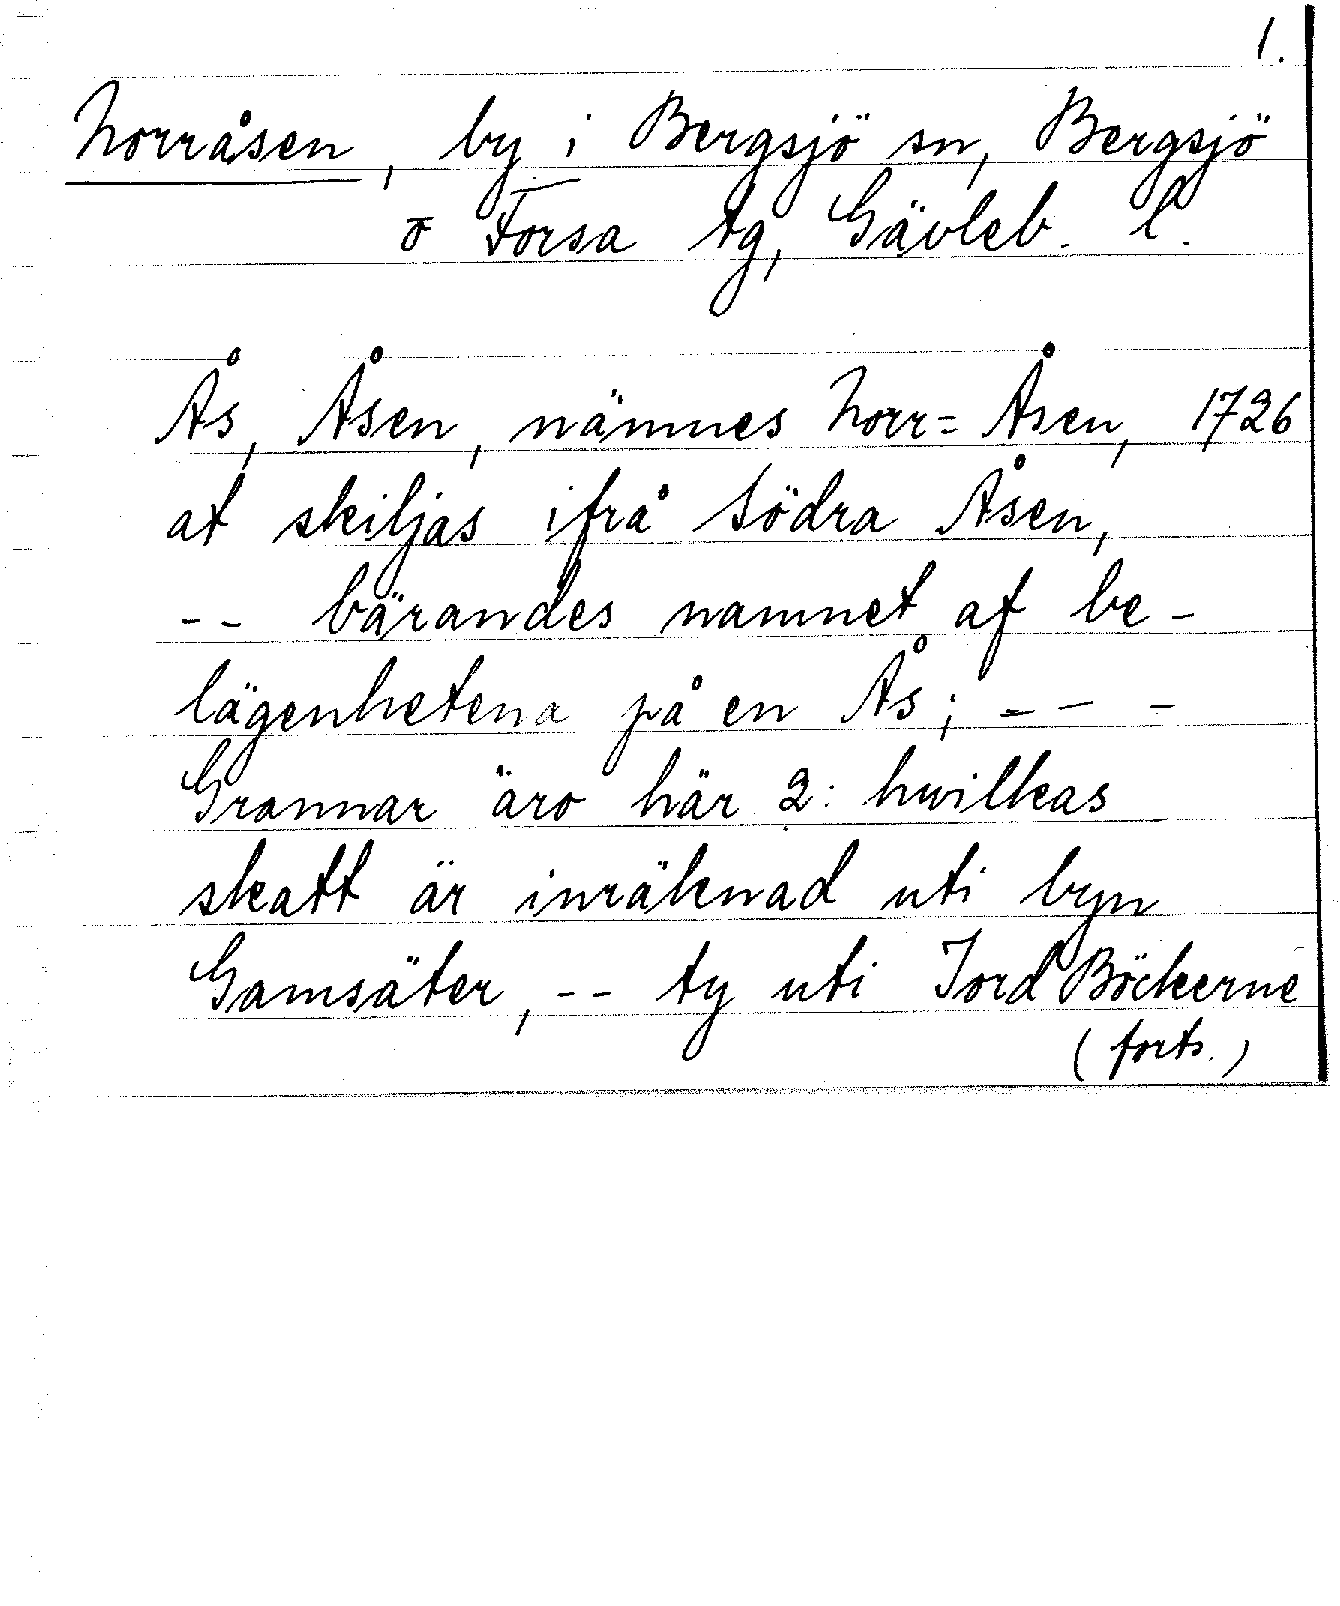 1.
Norråsen, by i Bergsjö sn, Bergsjö
o Forsa tg, Gävleb. l.
Ås, Åsen, nämnes Norr= Åsen, 1726
at skiljas ifrå Södra Åsen,
-- bärandes namnet af be-
lägenhetena på en Ås; - - -
Grannar äro här 2: hwilkas
skatt är inräknad uti byn
Gamsäter, -- ty uti Jord Böckerne
(forts.)